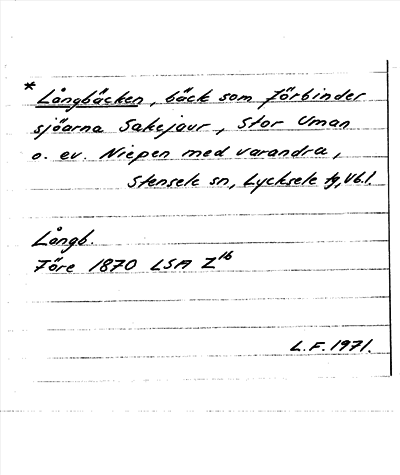 * Långbäcken, bäck som förbinder
sjöarna Sakejaur, Stor Uman
o. ev. Niepen med varandra,
Stensele sn, Lycksele tg, Vb.l.
Långb.
Före 1870 LSA Z16
L.F. 1971.